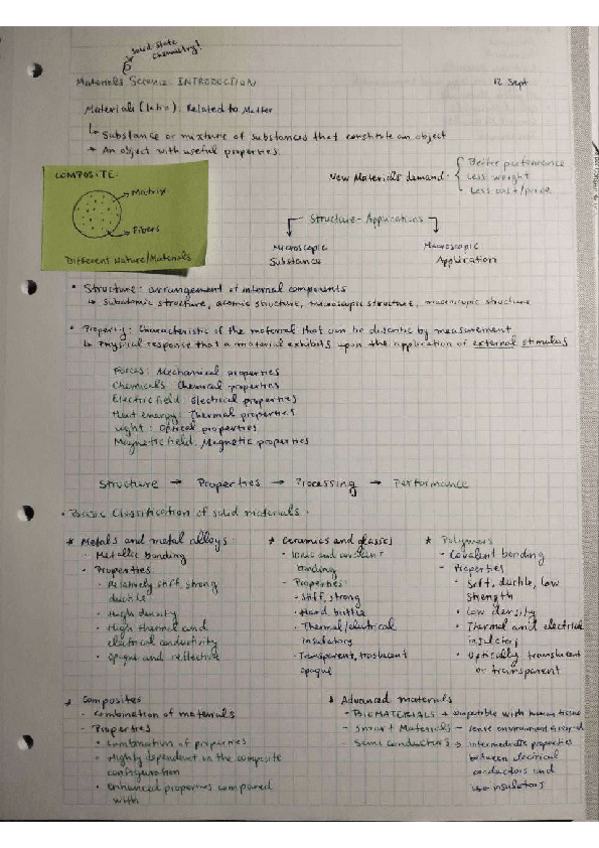 Solid-State
Chemistry!
Materials Science: INTRODUCTION
12 Sept
Materials (latin): Related to Matter
↳ Substance or mixture of substances that constitute an object
→ An object with useful properties.
COMPOSITE:
→ Matrix
→ Fibers
Different Nature/Materials
New Materials demand:
Better performance
Less weight
Less cost/price
Structure - Applications
Microscopic
Substance
Macroscopic
Application
• Structure: arrangement of internal components
↳ Subatomic structure, atomic structure, microscopic structure, macroscopic structure
• Property: Characteristic of the material that can be by measurement
↳ Physical response that a material exhibits upon the application of external stimulus
Forces: Mechanical properties
Chemicals: Chemical properties
Electric field: Electrical properties
Heat energy: Thermal properties
Light: Optical properties
Magnetic field: Magnetic properties
Structure → Properties → Processing → Performance
• Basic Classification of solid materials:
* Metals and metal alloys:
- Metallic bonding
- Properties
• Relatively stiff, strong
ductile
• High density
• High thermal and
electrical conductivity
• Opaque and reflective
* Ceramics and glasses
- Ionic and covalent
bonding
- Properties:
• Stiff, strong
• Hard brittle
• Thermal/electrical
insulatory
• Transparent, translucent
opaque
* Polymers
- Covalent bonding
- Properties
• Soft, ductile, low
strength
• low density
• Thermal and electrical
insulatory
• Optically translucent
or transparent
* Composites
- Combination of materials
- Properties
• Combination of properties
• Highly dependent on the composite
configuration
• Enhanced properties compared
with
* Advanced materials
- BIOMATERIALS → compatible with human tissue
- Smart Materials → sense environment
- Semi conductors → intermediate properties
between electrical
conductors and
insulators